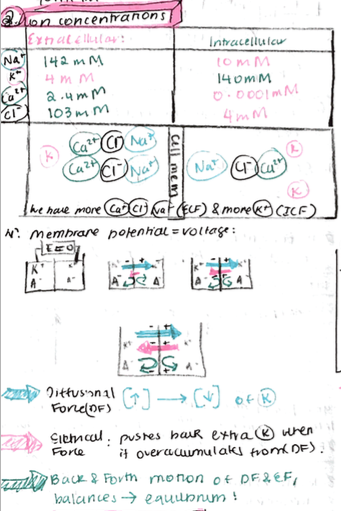 2. ion concentrations
Extracellular: Intracellular
Na⁺ 142 mM 10 mM
K⁺ 4 mM 140 mM
Ca²⁺ 2.4 mM 0.0001 mM
Cl⁻ 103 mM 4 mM
K Ca²⁺ Cl Na⁺ cell mem K
Ca²⁺ Cl⁻ Na⁺ Na⁺ Cl⁻ Ca²⁺
K
We have more Ca⁺ Cl⁻ Na⁺ (ECF) & more K⁺ (ICF)
membrane potential = voltage:
E=0
K⁺ K⁺ - + - +
A⁻ A⁻ A⁻ A⁻ A⁻ A⁻
- +
K⁺ K⁺
A⁻ A⁻
Diffusional [↑] → [↓] of K
Force (DF)
Electrical: pushes back extra K when
Force it overaccumulates from (DF).
Back & Forth motion of DF & EF,
balances → equilibrium!